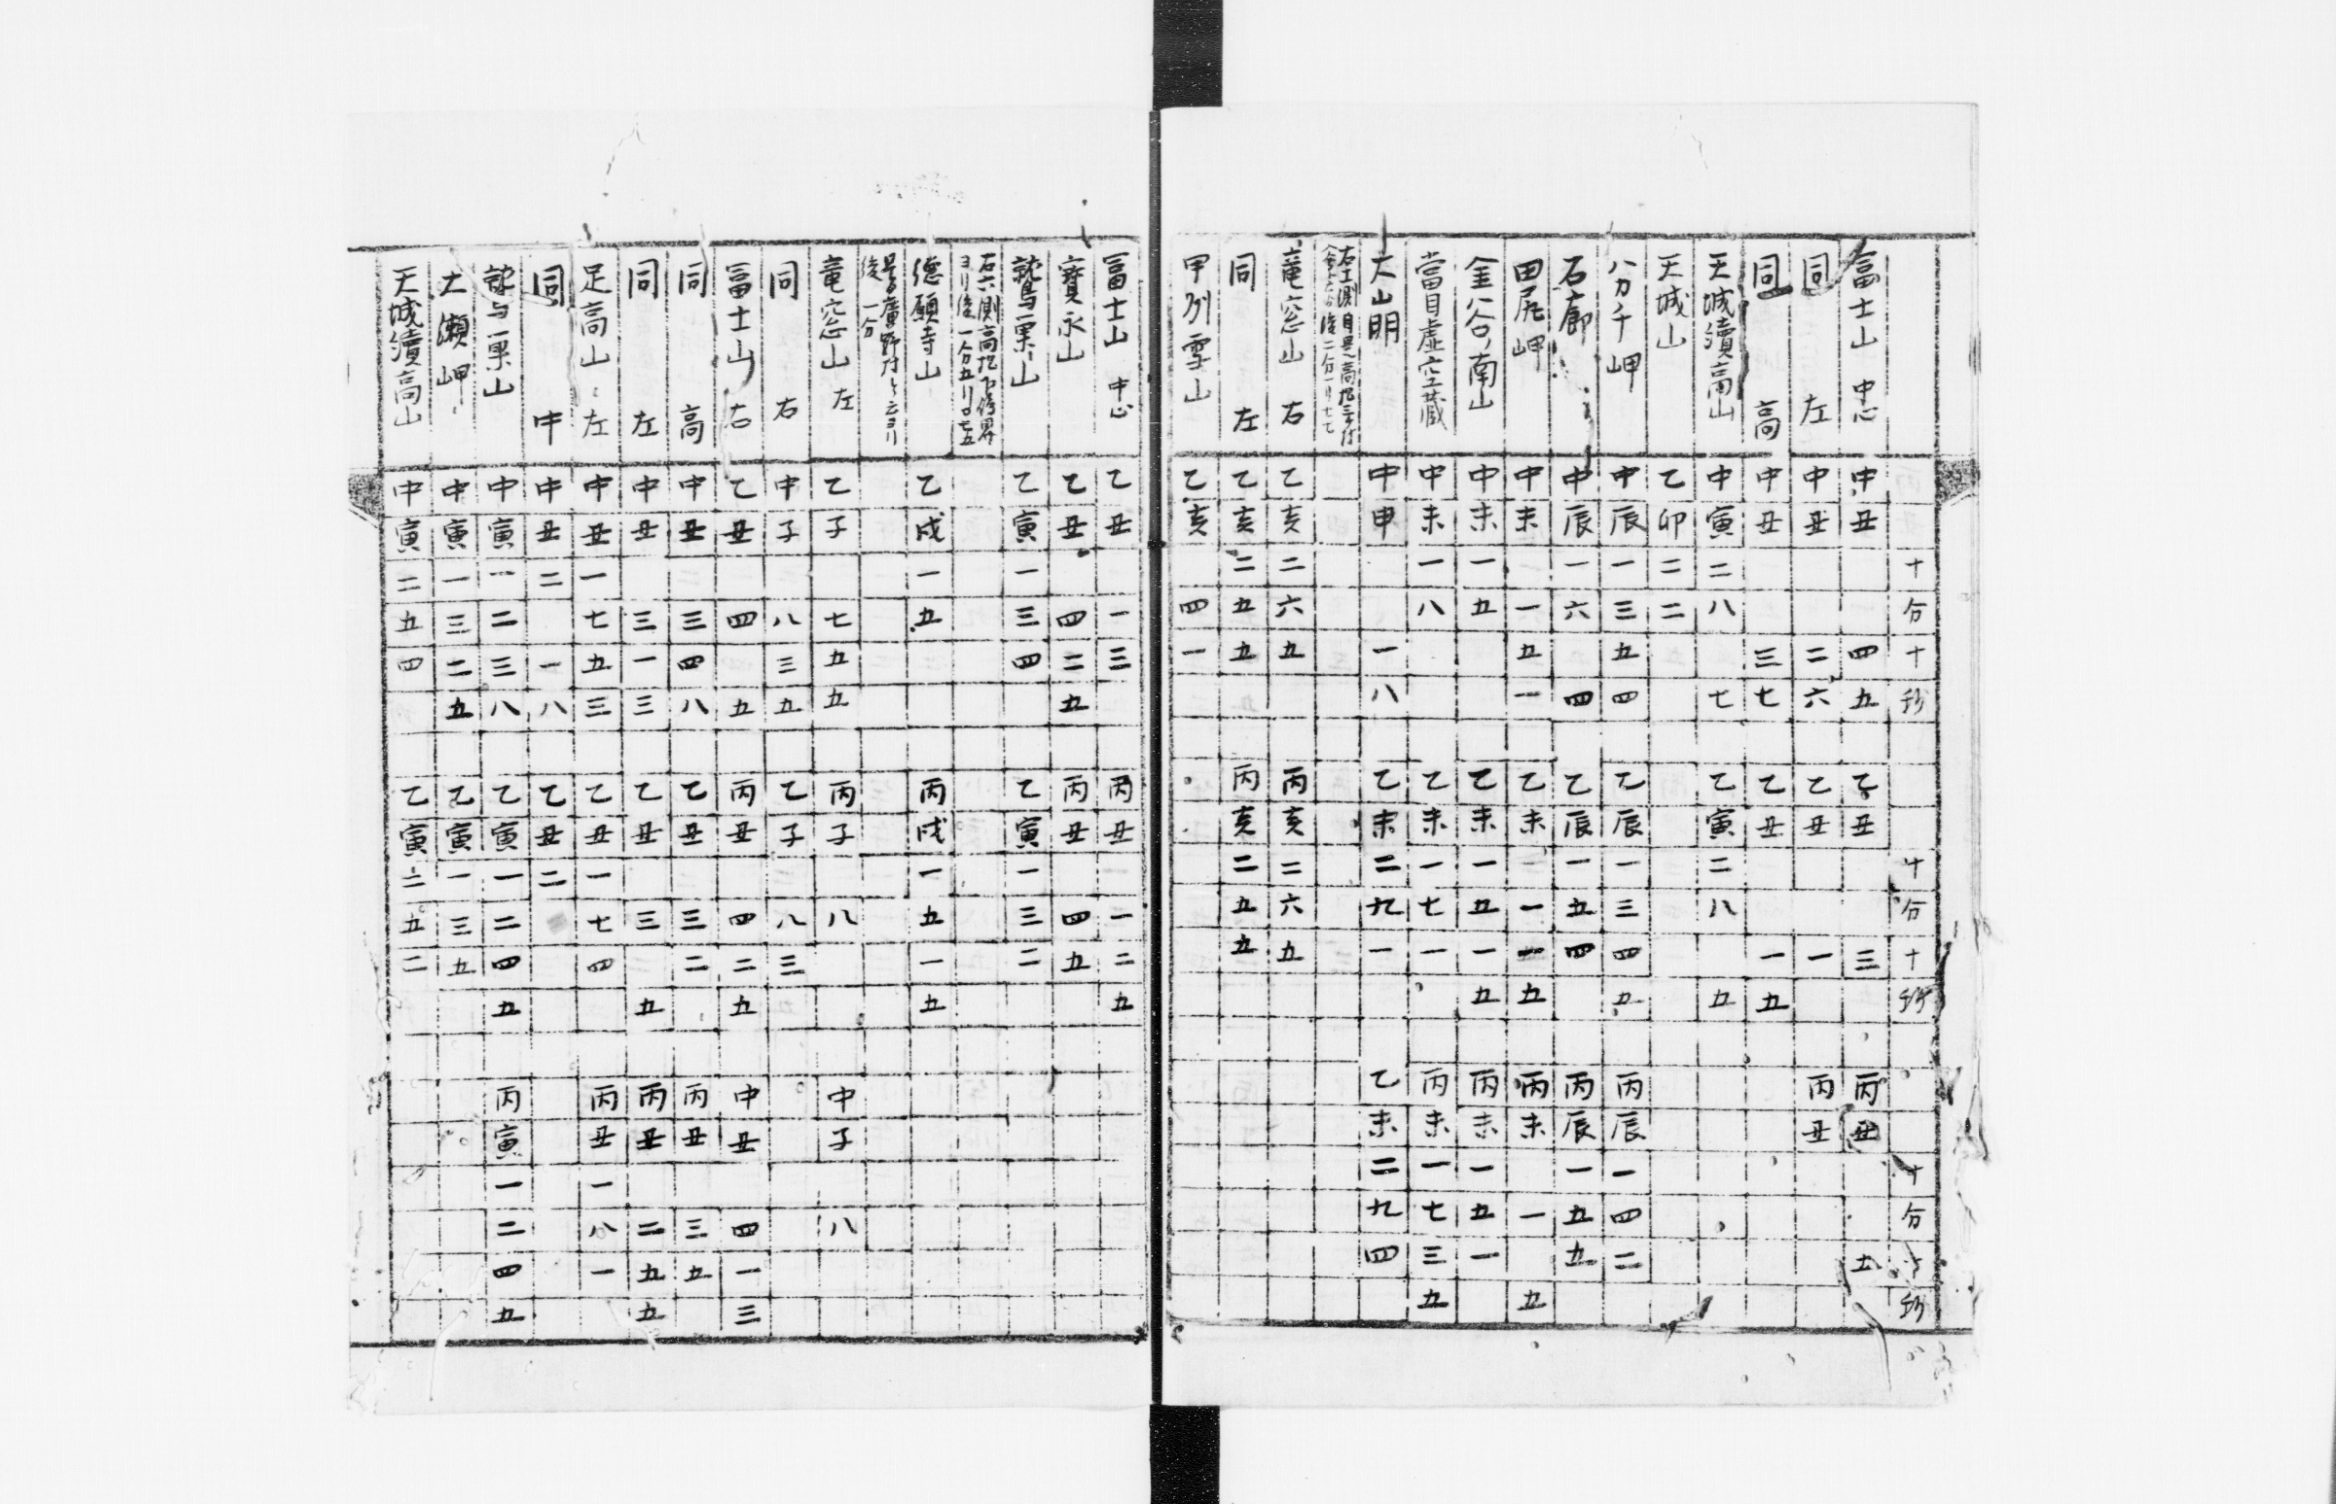 十分十秒 十分十秒 十分十秒
富士山 中心 中丑 四五 乙丑 三 丙丑 五
同 左 中丑 二六 乙丑 一 丙丑
同 高 中丑 三七 乙丑 一五
天城續高山 中寅二八 七 乙寅二八 五
天城山 乙卯二二
八万千岬 中辰一三五四 乙辰一三四五 丙辰一四二
石廊 中辰一六 四 乙辰一五四 丙辰一五五
田尻岬 中未 一五一 乙未 一一五 丙未 一 五
金谷南山 中未一五 乙未一五一五 丙未一五一
當目虚空蔵 中未一八 乙未一七一 丙未一七三五
大山明 中申 一八 乙未二九一 乙未二九四
竜窓山 右 乙亥二六五 丙亥二六五
同 左 乙亥二五五 丙亥二五五
甲州雪山 乙亥 四一
富士山 中心 乙丑 一三 丙丑 一二五
寳永山 乙丑 四二五 丙丑 四五
鷲巣山 乙寅一三四 乙寅一三二
徳願寺山 乙戌一五 丙戌一五一五
竜窓山 左 乙子 七五五 丙子 八 中子 八
同 右 中子 八三五 乙子 八三
冨士山 右 乙丑 四 五 丙丑 四二五 中丑 四一三
同 高 中丑 三四八 乙丑 三二 丙丑 三五
同 左 中丑 三一三 乙丑 三 五 丙丑 二五五
足高山 左 中丑一七五三 乙丑一七四 丙丑一八一
同 中 中丑二 一八 乙丑二
山 中寅一二三八 乙寅一二四五 丙寅一二四五
大瀬岬 中寅一三二五 乙寅一三五
天城續高山 中寅二五四 乙寅二五二